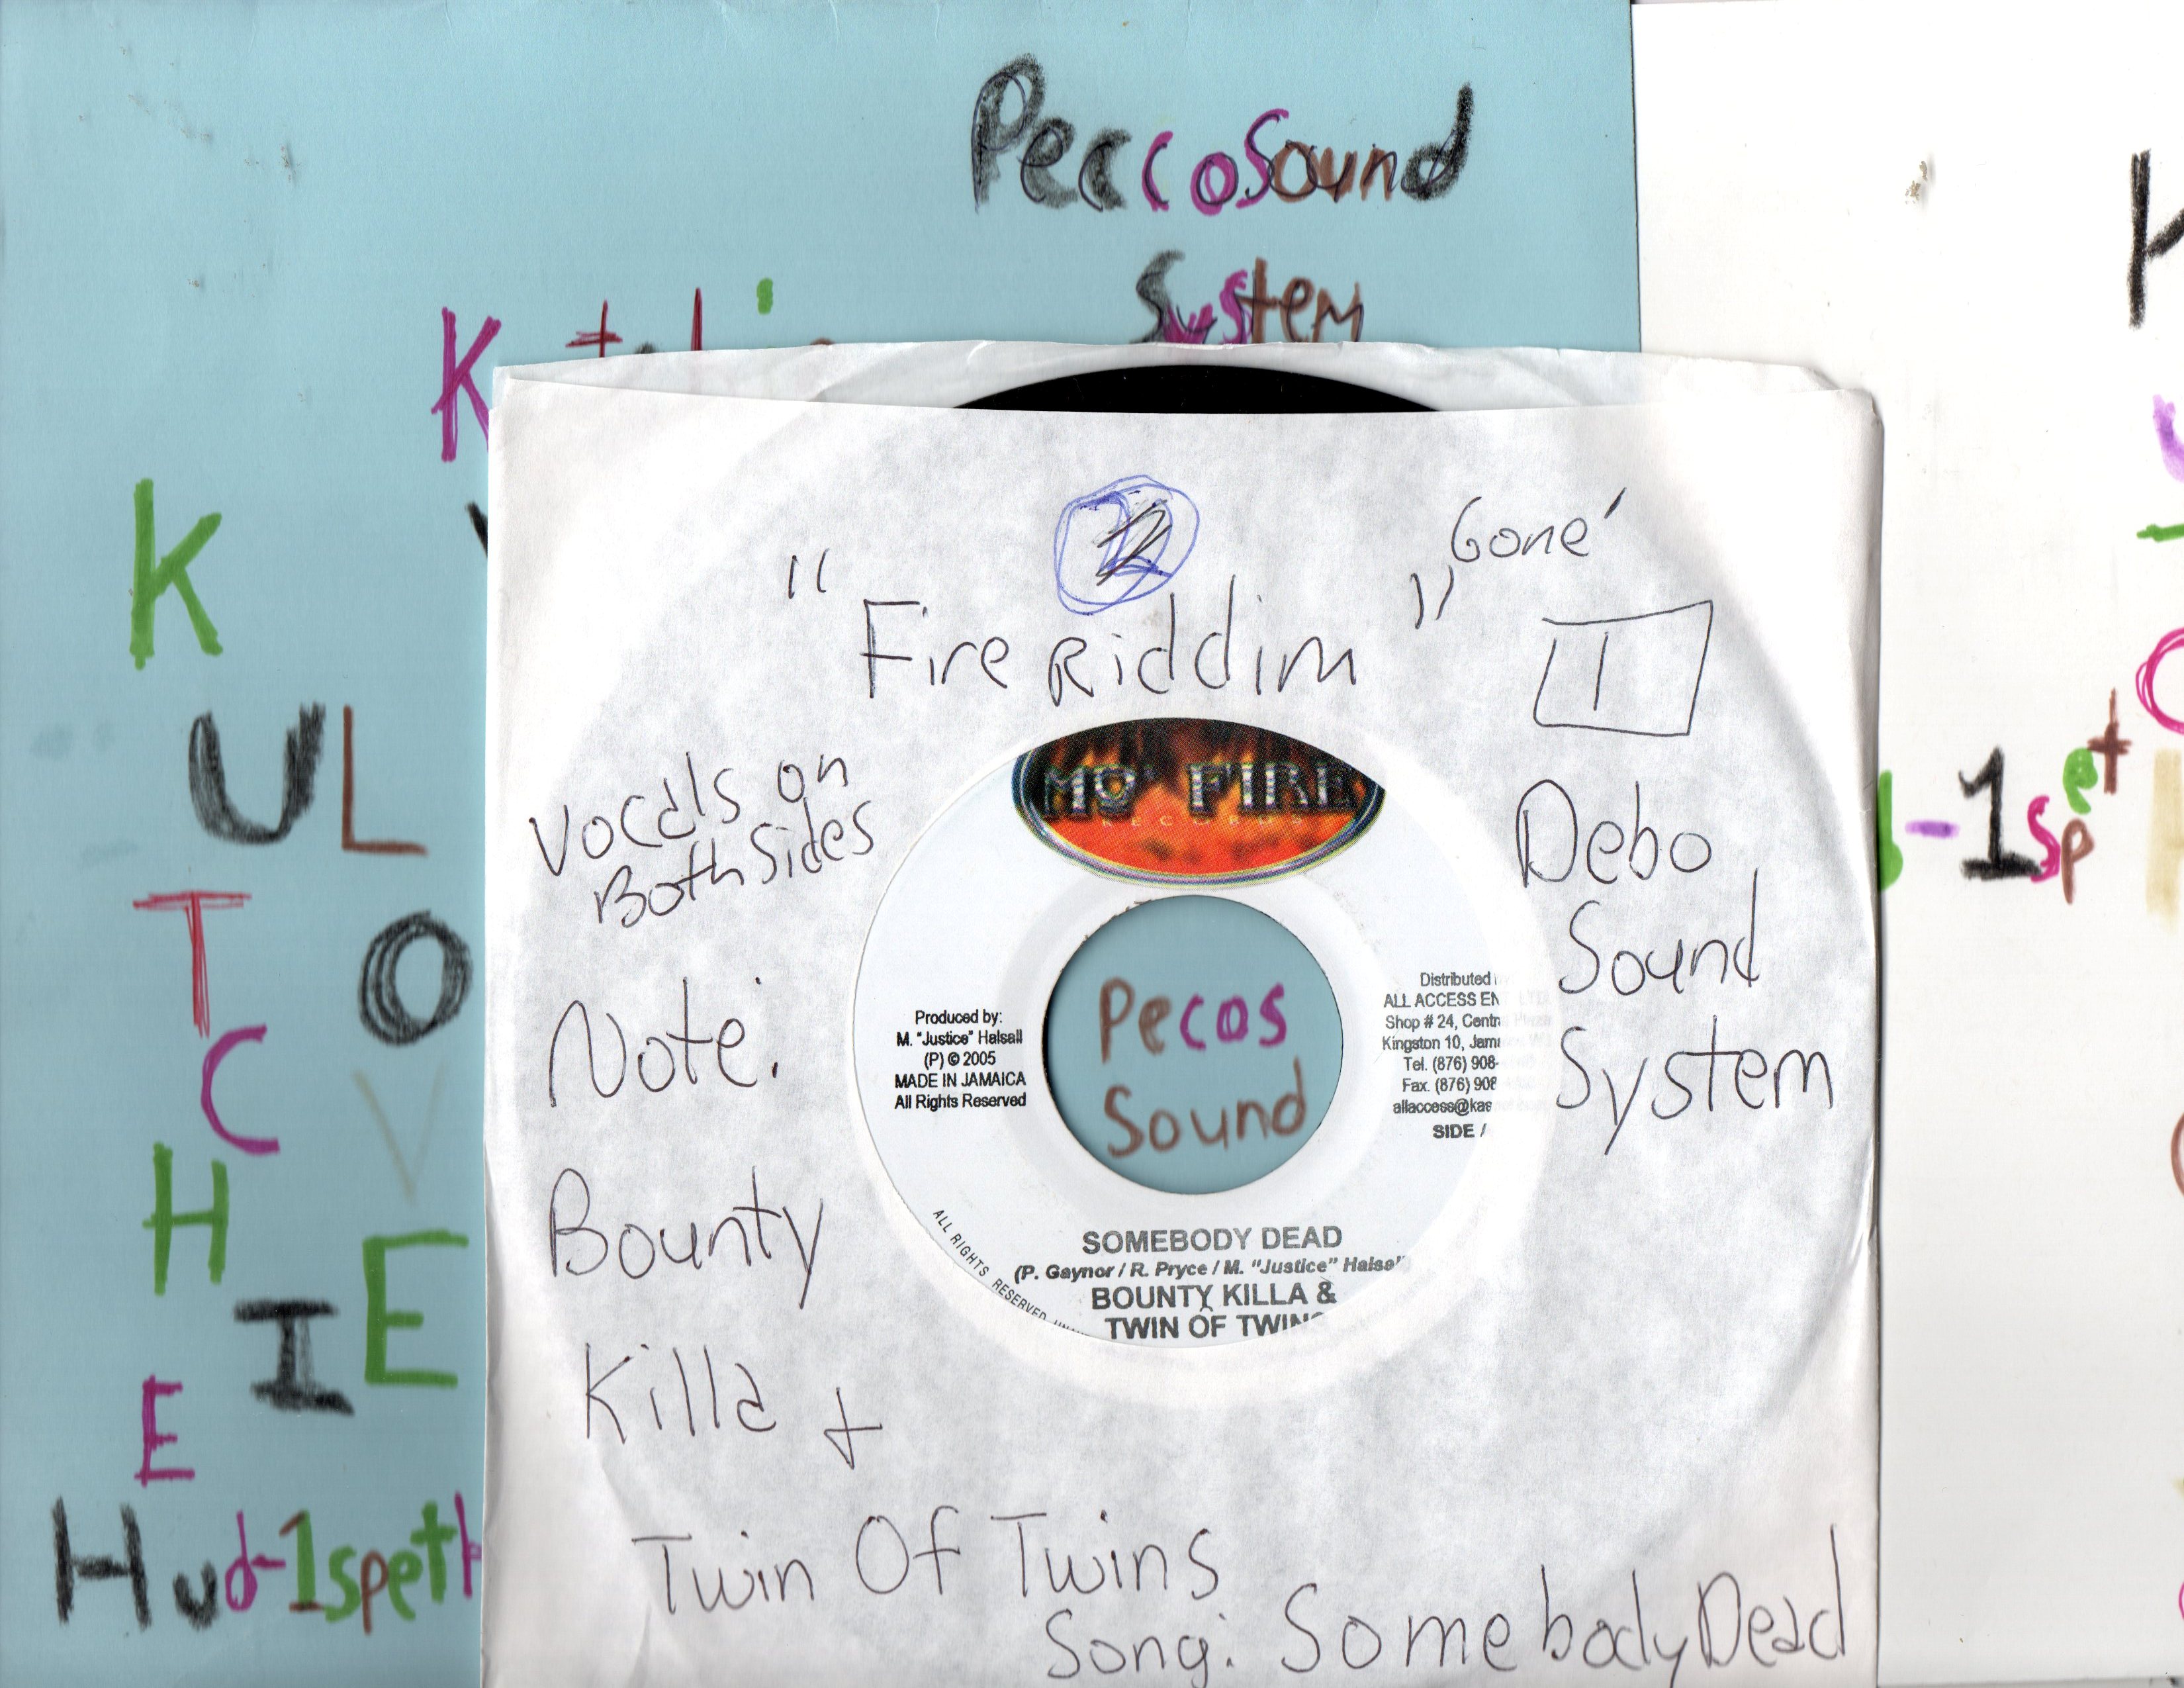 PeccoSound
System
K
K
UL
T
O
C
V
H
E
I
E
Hud-1speth
2
"Fire Riddim"
Gone'
1
Vocals on
Both Sides
Debo
Sound
System
Note:
Bounty
Killa +
Twin Of Twins
Song: Somebody Dead
MO' FIRE
RECORDS
Pecos
Sound
Produced by:
M. "Justice" Halsall
(P) © 2005
MADE IN JAMAICA
All Rights Reserved
Distributed
ALL ACCESS EN
Shop # 24, Centr
Kingston 10, Jam
Tel. (876) 908-
Fax. (876) 908
allaccess@kas
SIDE
SOMEBODY DEAD
(P. Gaynor / R. Pryce / M. "Justice" Halsall)
BOUNTY KILLA &
TWIN OF TWINS
ALL RIGHTS RESERVED
-1spet